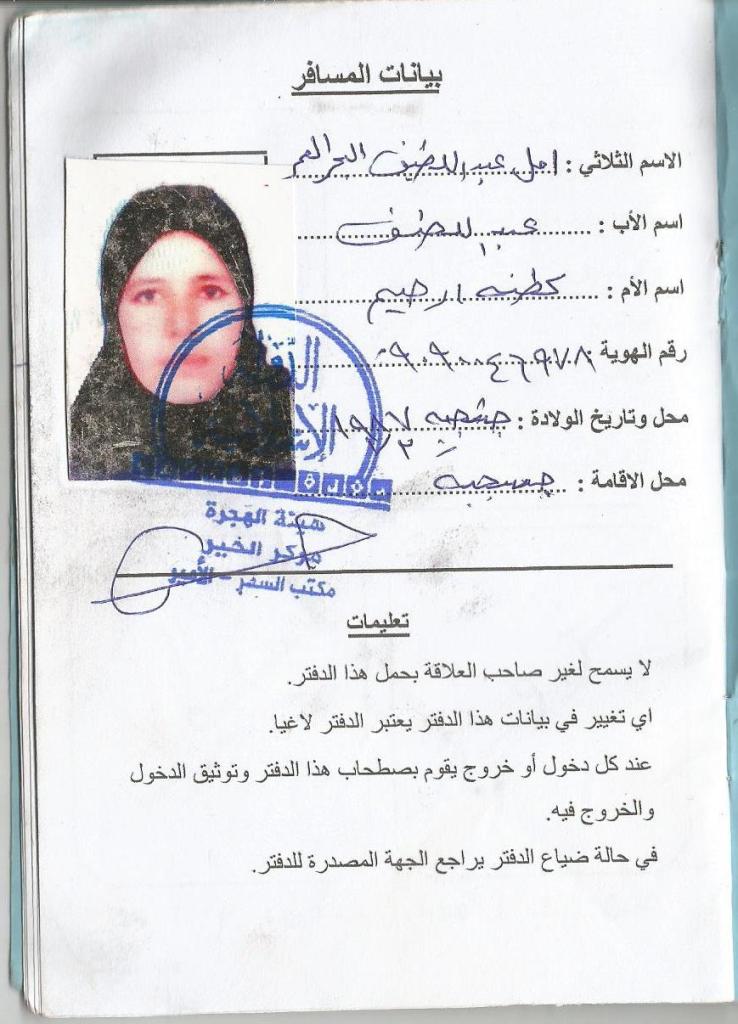 بيانات المسافر
الاسم الثلاثي : امل عبد اللطيف
اسم الأب : عبد اللطيف
اسم الأم :
رقم الهوية : ٠٩٠٩٠٠٤٦٩٧٨
محل وتاريخ الولادة :
محل الاقامة :
الإسلامية
هيئة الهجرة
مركز الخير
مكتب السفر - الأمير
تعليمات
لا يسمح لغير صاحب العلاقة بحمل هذا الدفتر.
اي تغيير في بيانات هذا الدفتر يعتبر الدفتر لاغيا.
عند كل دخول أو خروج يقوم بصطحاب هذا الدفتر وتوثيق الدخول
والخروج فيه.
في حالة ضياع الدفتر يراجع الجهة المصدرة للدفتر.